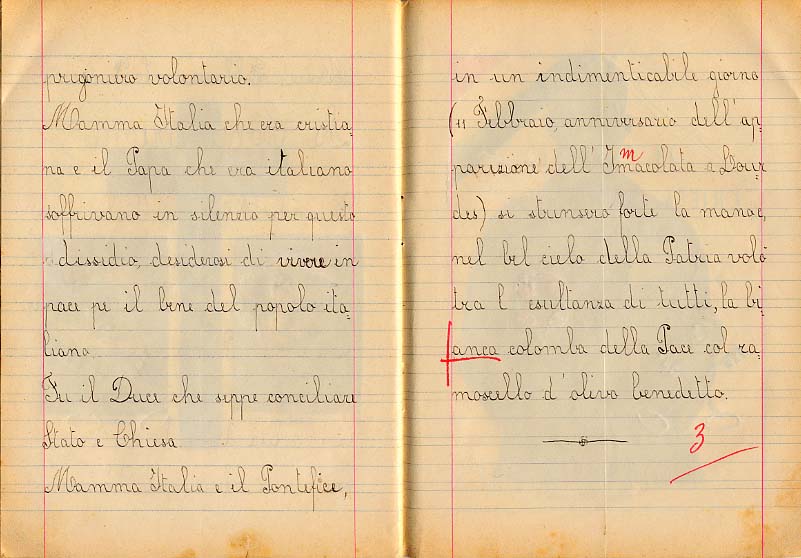 prigoniero volontario.
Mamma Italia che era cristia=
na e il Papa che era italiano
soffrivano in silenzio per questo
dissidio, desiderosi di vivere in
pace pe il bene del popolo ita=
liano
Fu il Duce che seppe conciliare
Stato e Chiesa
Mamma Italia e il Pontefice,
in un indimenticabile giorno
(11 Febbraio, anniversario dell'ap=
parizione dell' Immacolata a Lour
des) si strinsero forte la manoe,
nel bel cielo della Patria volò
tra l' esultanza di tutti, la bi
anca colomba della Pace col ra=
moscello d'olivo benedetto.
3